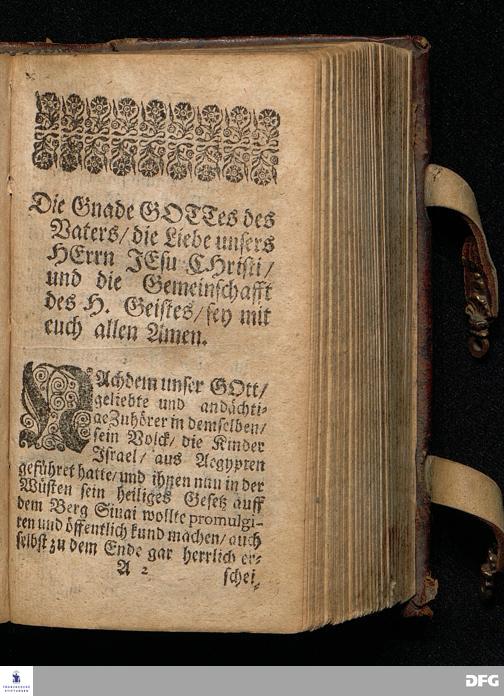 Die Gnade GOTTes des
Vaters/ die Liebe unsers
HErrn JEsu CHristi/
und die Gemeinschafft
des H. Geistes/ sey mit
euch allen Amen.
NAchdem unser GOtt/
geliebte und andächti-
ge Zuhörer in demselben/
sein Volck/ die Kinder
Israel/ aus Aegypten
geführet hatte/ und ihnen nun in der
Wüsten sein heiliges Gesetz auff
dem Berg Sinai wollte promulgi-
ren und öffentlich kund machen/ auch
selbst zu dem Ende gar herrlich er-
A 2
schei-
FRANCKESCHE
STIFTUNGEN
DFG